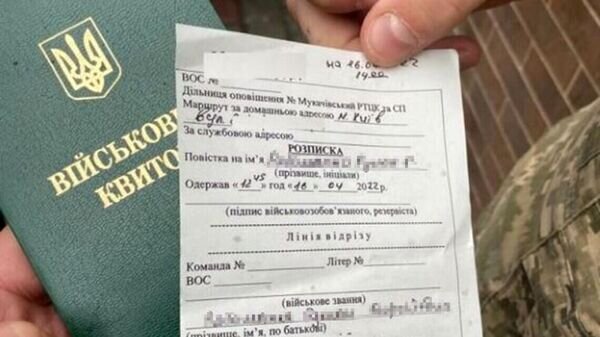 ВІЙСЬКОВ
КВИТО
на 16.0 22
14:00
ВОС №
Дільниця оповіщення № Мукачівський РТЦК та СП
Маршрут за домашньою адресою м. Київ
За службовою адресою
РОЗПИСКА
Повістка на ім'я
(прізвище, ініціали)
Одержав « 12 45 » год « 16 » 04 2022р.
(підпис військовозобов'язаного, резервіста)
Лінія відрізу
Команда № Літер №
ВОС
(військове звання)
(прізвище, ім'я, по батькові)